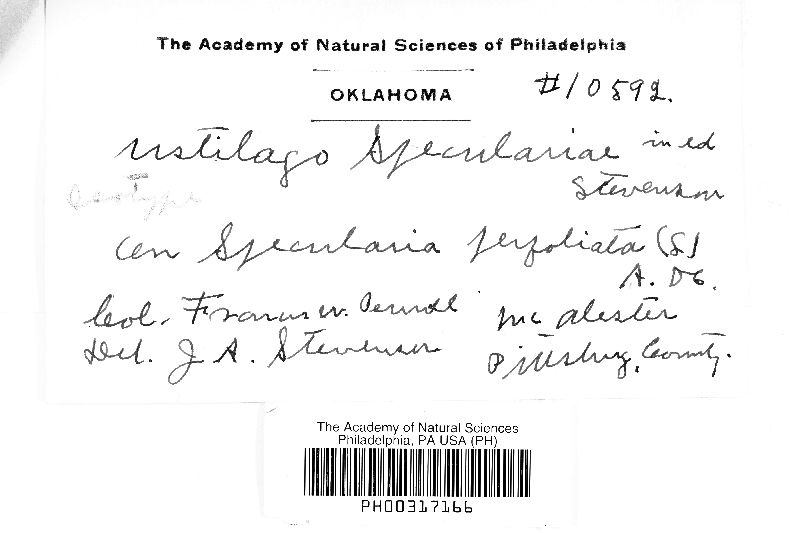 The Academy of Natural Sciences of Philadelphia
OKLAHOMA
#10592.
Ustilago Speculariae ined
Stevenson
on Specularia perfoliata (L)
A. DC.
Col. Francis W. Pennell
Mc Alester
Det. J A. Stevenson
Pittsburg, County.
The Academy of Natural Sciences
Philadelphia, PA USA (PH)
PH00317166